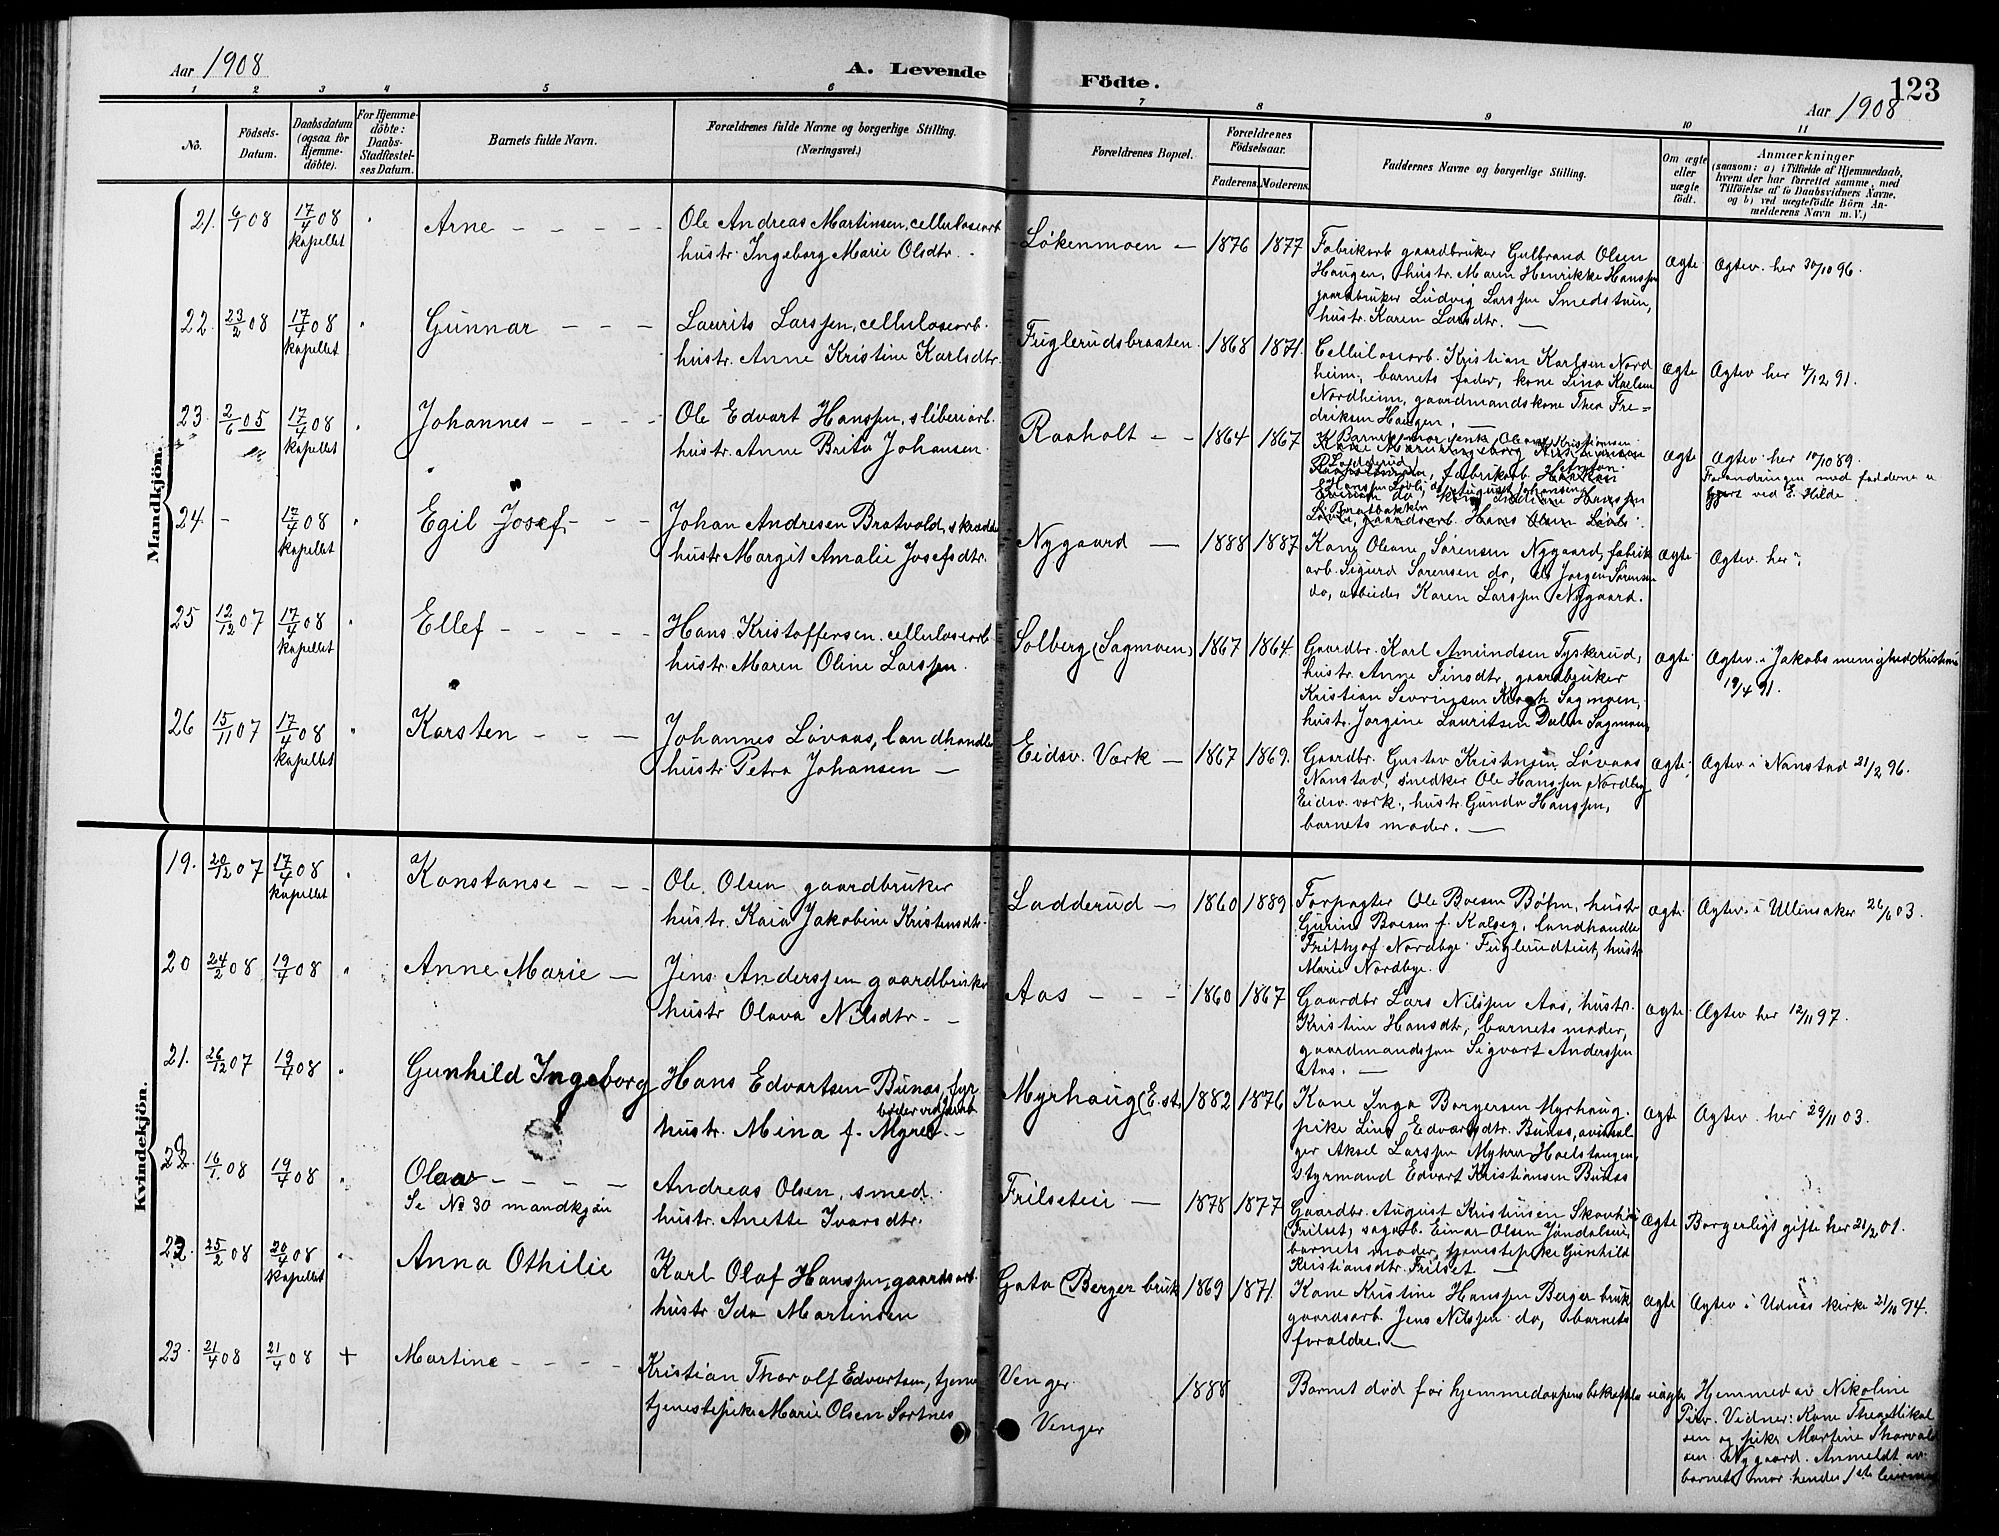 Aar 1908
A. Levende Födte.
123
Aar 1908
1 2 3 4 5 6 7 8 9 10 11
No.
Födsels-Datum.
Daabsdatum (ogsaa for Hjemme-döbte).
For Hjemme-döbte: Daabs-Stadfæstel-ses Datum.
Barnets fulde Navn.
Forældrenes fulde Navne og borgerlige Stilling.
(Næringsvei.)
Forældrenes Bopæl.
Forældrenes Födselsaar.
Faderens. Moderens.
Faddernes Navne og borgerlige Stilling.
Om ægte eller uægte födt.
Anmærkninger
(saasom: a) i Tilfælde af Hjemmedaab,
hvem der har forrettet samme, med
Tilföielse af to Daabsvidners Navne,
og b) ved uægtefödte Börn An-
melderens Navn m. V.)
Mandkjön.
21. 6/1 08 17/4 08 kapellet
Arne
Ole Andreas Martinsen, cellulosearb
hustr. Ingeborg Marie Olsdtr.
Løkenmoen 1876 1877
Fabrikarb gaardbruker Gulbrand Olsen
Haugen, hustr. Maren Henrikke Hanssen
gaardbruker Ludvig Larssen Smedstuen,
hustr. Karen Larsdtr.
ægte
Ægtev. her 30/10 96.
22. 23/2 08 17/4 08 kapellet
Gunnar
Laurits Larssen, cellulosearb.
hustr. Anne Kristine Karlsdtr.
Fuglerudsbraaten. 1868 1871.
Cellulosearb. Kristian Karlsen Nord
heim, barnets fader, kone Lina Karlsen
Nordheim, gaardmandskone Thea Fre-
driksen Haugen.
ægte
Ægtev her 4/12 91.
23. 2/6 05 17/4 08 kapellet
Johannes
Ole Edvart Hanssen, sliberiarb.
hustr. Anne Brita Johansen.
Raaholt 1864 1867
ægte
Ægtev. her 10/10 89.
Forandringen med fadderne
gjort ved E. Hilde.
24. - 17/4 08 kapellet
Egil Josef
Johan Andresen Bratvold, skrædder
hustr Margit Amalie Josefsdtr.
Nygaard 1888 1887
Kone Oleane Sørensen Nygaard, fabrik
arb. Sigurd Sørensen do, do Jørgen Sørensen
do, arbeides Karen Larssen Nygaard.
ægte
Ægtev. her?
25 12/12 07 17/4 08 kapellet
Ellef
Hans Kristoffersen. cellulosearb.
hustr. Maren Oline Larssen.
Solberg (Sagmoen) 1867 1864.
Gaardbr. Karl Amundsen Tyskerud,
hustr. Anne Finsdtr, gaardbruker
Kristian Sevrinsen Krogh Sagmoen,
hustr. Jørgine Lauritsen Dalen Sagmoen
ægte
Ægtev. i Jakobs menighed Kristiania
19/4 91.
26 15/11 07 17/4 08 kapellet
Karsten
Johannes Løvaas, landhandler
hustr. Petra Johansen
Eidsv. Værk 1867 1869.
Gaardbr. Gustav Kristensen Løvaas
Nanstad, snedker Ole Hanssen Nordberg
Eidsv. værk., hustr. Gunda Hanssen,
barnets moder.
ægte.
Ægtev. i Nanstad 21/2 96.
Kvindekjön.
19. 20/12 07 17/4 08 kapellet
Konstanse
Ole Olsen gaardbruker
hustr. Kaia Jakobine Kristensdtr.
Ladderud 1860 1889
Forpagter Ole Boesen Bøhn, hustr.
Gurine Boesen f. Kalseg, landhandler
Frithjof Nordbye Fuglerudteiet, hustr
Marie Nordbye.
ægte.
Ægtev. i Ullensaker 26/6 03.
20 24/2 08 19/4 08
Anne Marie
Jens Anderssen gaardbruker
hustr Olava Nilsdtr.
Aas 1860 1867
Gaardbr Lars Nilssen Aas, hustr.
Kristine Hansdtr, barnets moder,
gaardmandssøn Sigvart Anderssen
Aas.
ægte.
Ægtev her 12/11 97.
21. 26/12 07 19/4 08
Gunhild Ingeborg
Hans Edvartsen Bunæs, fyr
bøder ved Jernb
hustr. Mina f. Myrer.
Myrhaug (E. st. 1882 1876
Kone Inga Borgersen Myrhaug.
pike Lina Edvardsdtr. Bunæs,
ger Aksel Larssen Myhrer Hoelstangen,
styrmand Edvart Kristiansen Bunæs
ægte
Ægtev. her 29/11 03.
22. 16/1 08 19/4 08
Olaa
Se No 30 mandkjøn
Andreas Olsen, smed.
hustr. Anette Ivarsdtr.
Frilseteie 1878 1877
Gaardbr. August Kristiansen
(Frilset, sagarb. Einar Olsen Jøndalseie,
barnets moder, tjenestepike Gunhild
Kristiansdtr. Frilset
ægte
Borgerligt gifte her 21/2 01.
22. 25/2 08 20/4 08 kapellet
Anna Othilie
Karl Olaf Hanssen, gaardsarb.
hustr Ida Martinsen
Gata (Berger bruk 1869 1871.
Kone Kristine Hanssen Berger bruk
gaardsarb. Jens Nilssen do, barnets
forældre.
ægte
Ægtev i Udnæs kirke 21/10 94.
23. 21/4 08 21/4 08 +
Martine
Kristian Thorolf Edvartsen, tjener
tjenestepike Marie Olsen Sørtnes
Venger
Venger
1888
Barnet død før hjemmedaapens bekræftelse
uægte
Hjemmed av Nikoline
Vidner: Kone Thea Mikal
sen og pike Martine Thorvald
sen Nygaard. Anmeldt av
barnets mor hendes 1ste